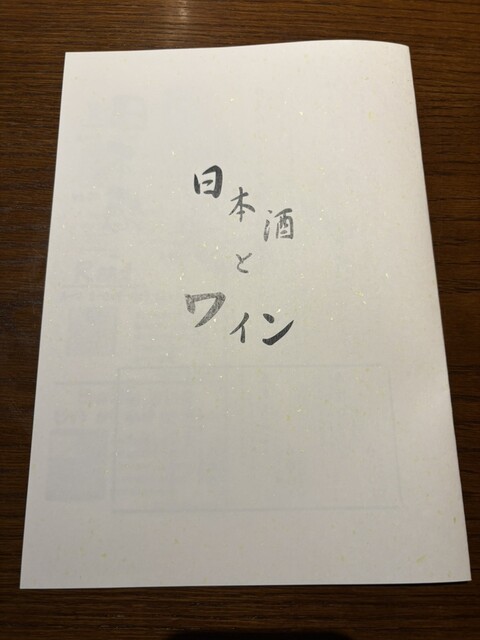 日本酒
と
ワイン